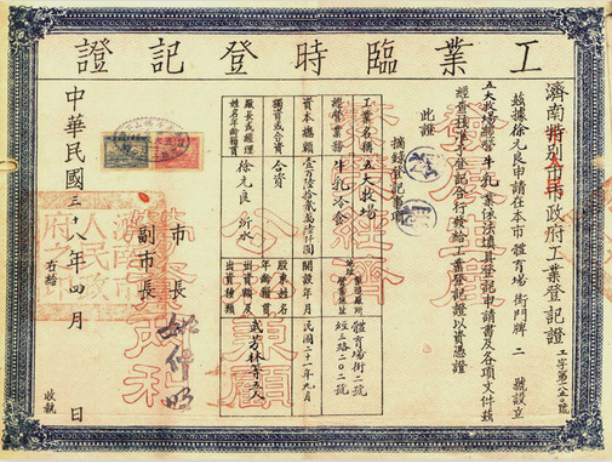 工業臨時登記證
濟南特別市市政府工業登記證 工字第一八五〇號
茲據徐元良申請在本市體育場街門牌二號設立
五大牧場經營牛乳業依法填具登記申請書及各項文件茲
經查核準予登記合行發給工業登記證以資憑證
此證
摘錄登記事項
工業名稱 五大牧場
經營業務 牛乳冷食
製造廠所地址 體育場街二號
營業地址 經三路二〇二號
資本總額
開設年月 民國二十一年九月
獨資或合資 合資
股東姓名年齡籍貫出資額及出資種類 武若林等五人
廠長或經理姓名年齡籍貫 徐元良 沂水
市長
副市長
中華民國三十八年四月 日
右給 收執
發展生產
繁榮經濟
公私兼顧
勞資兩利
濟南市人民政府之印